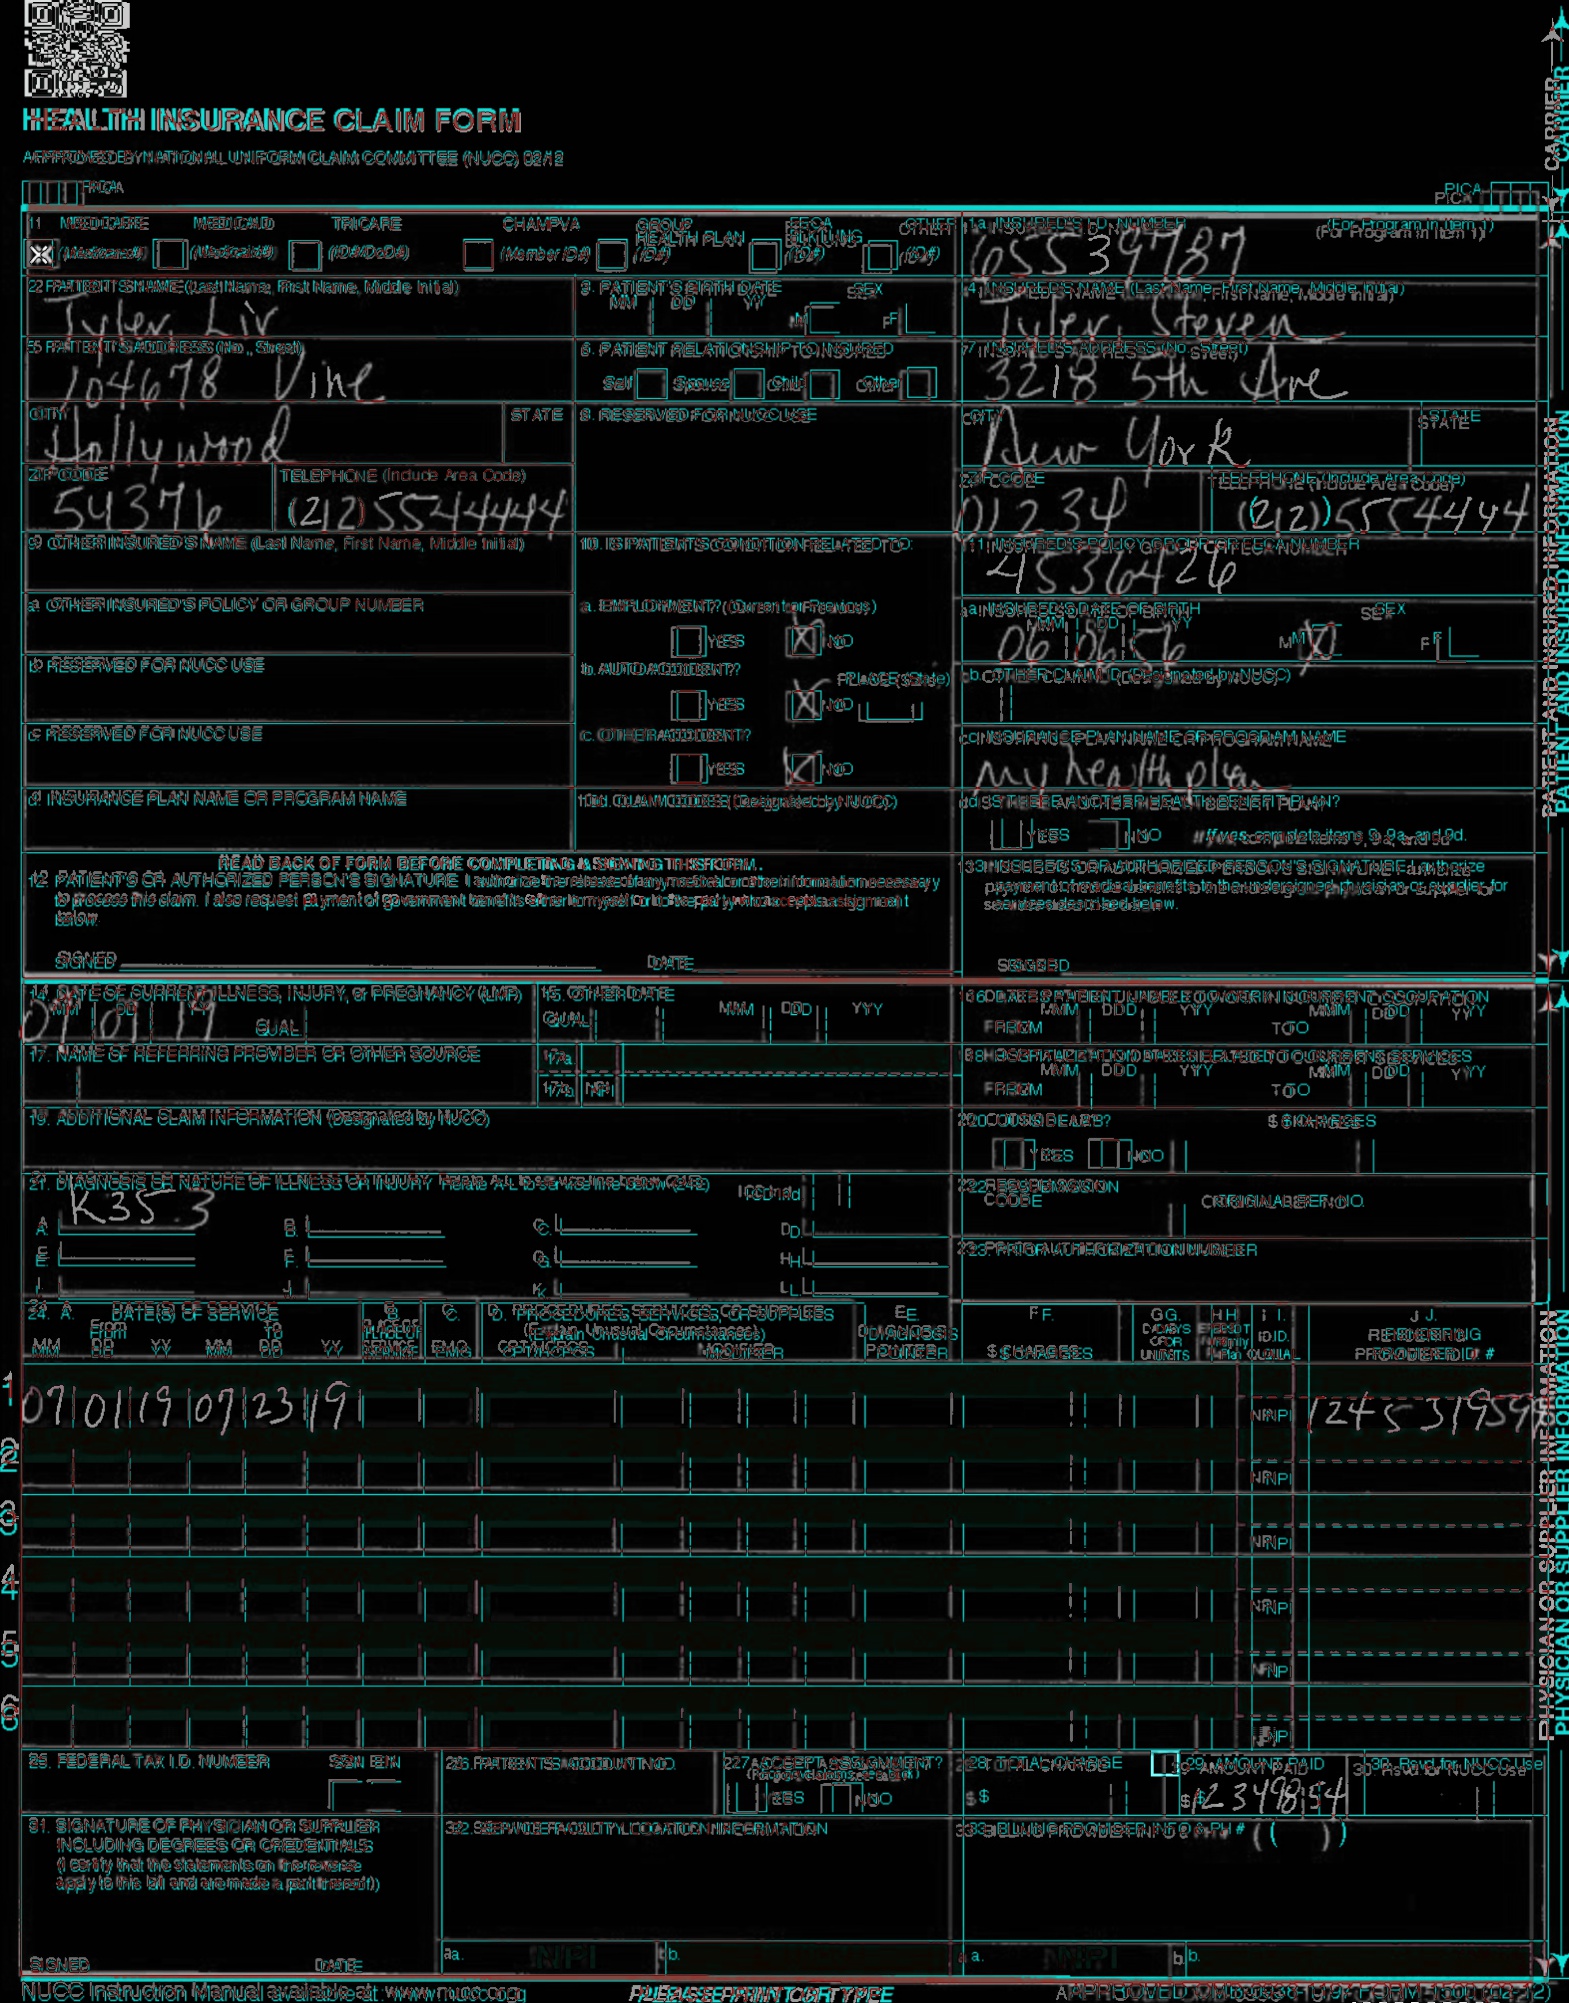 HEALTH INSURANCE CLAIM FORM
APPROVED BY NATIONAL UNIFORM CLAIM COMMITTEE (NUCC) 02/12
PICA
PICA
CARRIER
1 MEDICARE MEDICAID TRICARE CHAMPVA GROUP HEALTH PLAN FECA BLK LUNG OTHER
(Medicare#) (Medicaid#) (ID#/DoD#) (Member ID#) (ID#) (ID#) (ID#)
1a. INSURED'S I.D. NUMBER (For Program in Item 1)
655397787
2. PATIENT'S NAME (Last Name, First Name, Middle Initial)
Tyler, Liv
3. PATIENT'S BIRTH DATE SEX
MM DD YY M F
4. INSURED'S NAME (Last Name, First Name, Middle Initial)
Tyler, Steven
5. PATIENT'S ADDRESS (No., Street)
104678 Vine
6. PATIENT RELATIONSHIP TO INSURED
Self Spouse Child Other
7. INSURED'S ADDRESS (No., Street)
3218 5th Ave
CITY STATE
Hollywood
8. RESERVED FOR NUCC USE
CITY STATE
New York
ZIP CODE TELEPHONE (Include Area Code)
54376 (212) 5544444
ZIP CODE TELEPHONE (Include Area Code)
01234 (212) 5554444
9. OTHER INSURED'S NAME (Last Name, First Name, Middle Initial)
10. IS PATIENT'S CONDITION RELATED TO:
11. INSURED'S POLICY GROUP OR FECA NUMBER
4536426
a. OTHER INSURED'S POLICY OR GROUP NUMBER
a. EMPLOYMENT? (Current or Previous)
YES NO
a. INSURED'S DATE OF BIRTH SEX
MM DD YY
06 06 56 M F
b. RESERVED FOR NUCC USE
b. AUTO ACCIDENT? PLACE (State)
YES NO
b. OTHER CLAIM ID (Designated by NUCC)
c. RESERVED FOR NUCC USE
c. OTHER ACCIDENT?
YES NO
c. INSURANCE PLAN NAME OR PROGRAM NAME
my health plan
d. INSURANCE PLAN NAME OR PROGRAM NAME
10d. CLAIM CODES (Designated by NUCC)
d. IS THERE ANOTHER HEALTH BENEFIT PLAN?
YES NO If yes, complete items 9, 9a, and 9d.
READ BACK OF FORM BEFORE COMPLETING & SIGNING THIS FORM.
12. PATIENT'S OR AUTHORIZED PERSON'S SIGNATURE I authorize the release of any medical or other information necessary
to process this claim. I also request payment of government benefits either to myself or to the party who accepts assignment
below.
SIGNED DATE
13. INSURED'S OR AUTHORIZED PERSON'S SIGNATURE I authorize
payment of medical benefits to the undersigned physician or supplier for
services described below.
SIGNED
PATIENT AND INSURED INFORMATION
14. DATE OF CURRENT ILLNESS, INJURY, or PREGNANCY (LMP)
07 01 19 QUAL
15. OTHER DATE
QUAL MM DD YY
16. DATES PATIENT UNABLE TO WORK IN CURRENT OCCUPATION
MM DD YY MM DD YY
FROM TO
17. NAME OF REFERRING PROVIDER OR OTHER SOURCE
17a.
17b. NPI
18. HOSPITALIZATION DATES RELATED TO CURRENT SERVICES
MM DD YY MM DD YY
FROM TO
19. ADDITIONAL CLAIM INFORMATION (Designated by NUCC)
20. OUTSIDE LAB? $ CHARGES
YES NO
21. DIAGNOSIS OR NATURE OF ILLNESS OR INJURY Relate A-L to service line below (24E) ICD Ind.
A. K35.3 B. C. D.
E. F. G. H.
I. J. K. L.
22. RESUBMISSION
CODE ORIGINAL REF. NO.
23. PRIOR AUTHORIZATION NUMBER
24. A. DATE(S) OF SERVICE
From To
MM DD YY MM DD YY
B. PLACE OF SERVICE
C. EMG
D. PROCEDURES, SERVICES, OR SUPPLIES
(Explain Unusual Circumstances)
CPT/HCPCS MODIFIER
E. DIAGNOSIS POINTER
F. $ CHARGES
G. DAYS OR UNITS
H. EPSDT Family Plan
I. ID. QUAL
J. RENDERING PROVIDER ID. #
1 07 01 19 07 23 19 NPI
2 NPI
3 NPI
4 NPI
5 NPI
6 NPI
PHYSICIAN OR SUPPLIER INFORMATION
25. FEDERAL TAX I.D. NUMBER SSN EIN
26. PATIENT'S ACCOUNT NO.
27. ACCEPT ASSIGNMENT?
YES NO
28. TOTAL CHARGE
$
29. AMOUNT PAID
$ 123498 54
30. Rsvd for NUCC Use
31. SIGNATURE OF PHYSICIAN OR SUPPLIER
INCLUDING DEGREES OR CREDENTIALS
(I certify that the statements on the reverse
apply to this bill and are made a part thereof.)
SIGNED DATE
32. SERVICE FACILITY LOCATION INFORMATION
a. NPI b.
33. BILLING PROVIDER INFO & PH # ( )
a. NPI b.
NUCC Instruction Manual available at: www.nucc.org
PLEASE PRINT OR TYPE